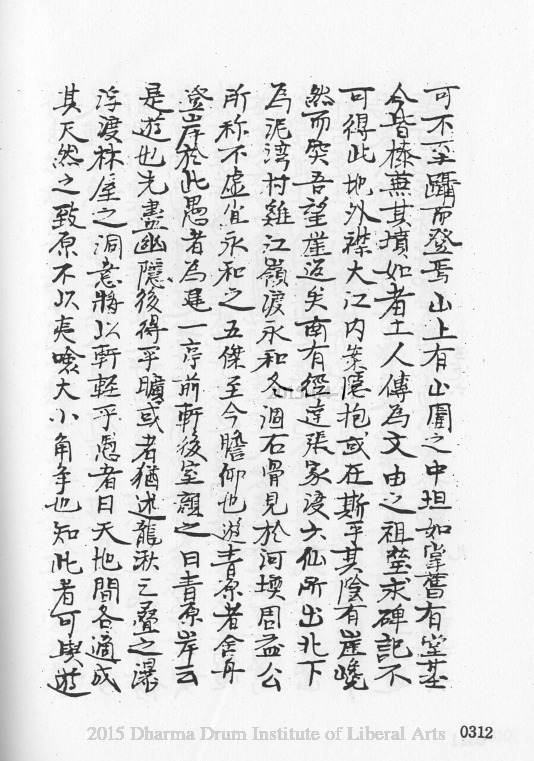 可不至躡而登焉山上有山圍之中坦如掌舊有堂基
今皆榛蕪其墳如者土人傳為文由之祖塋求碑記不
可得此地外襟大江内案隱抱或在斯乎其陰有崖巉
然而突吾望崖返矣南有徑達張家渡六仙所出北下
為泥湾村雞江嶺渡永和各涸石骨見於河堧周益公
所称不虚省永和之五傑至今瞻仰也遊青原者舍舟
登岸於此愚者為建一亭前軒後室顔之曰青原岸云
是遊也先盡幽隱後得乎曠或者猶述龍湫三疊之瀑
浮渡林屋之洞意將以軒軽乎愚者曰天地間各適成
其天然之致原不以夷嶮大小角争也知此者可與遊
2015 Dharma Drum Institute of Liberal Arts
0312